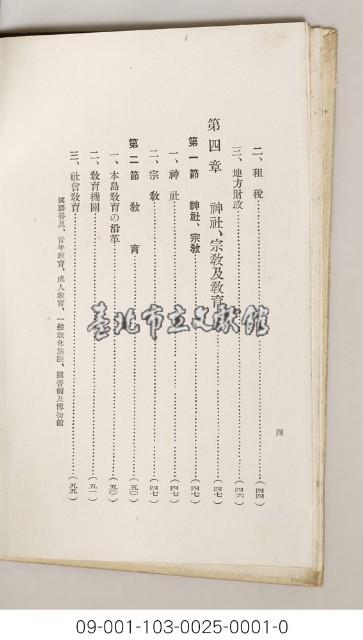 二、租稅……(四四)
三、地方財政……(四六)
第四章　神社、宗教及教育……(四七)
第一節　神社、宗教……(四七)
一、神社……(四七)
二、宗教……(四七)
第二節　教育……(五〇)
一、本島教育の沿革……(五〇)
二、教育機關……(五一)
三、社會教育……(五五)
國語普及、青年教育、成人教育、一般教化施設、圖書館及博物館
四
臺北市立文獻館
09-001-103-0025-0001-0